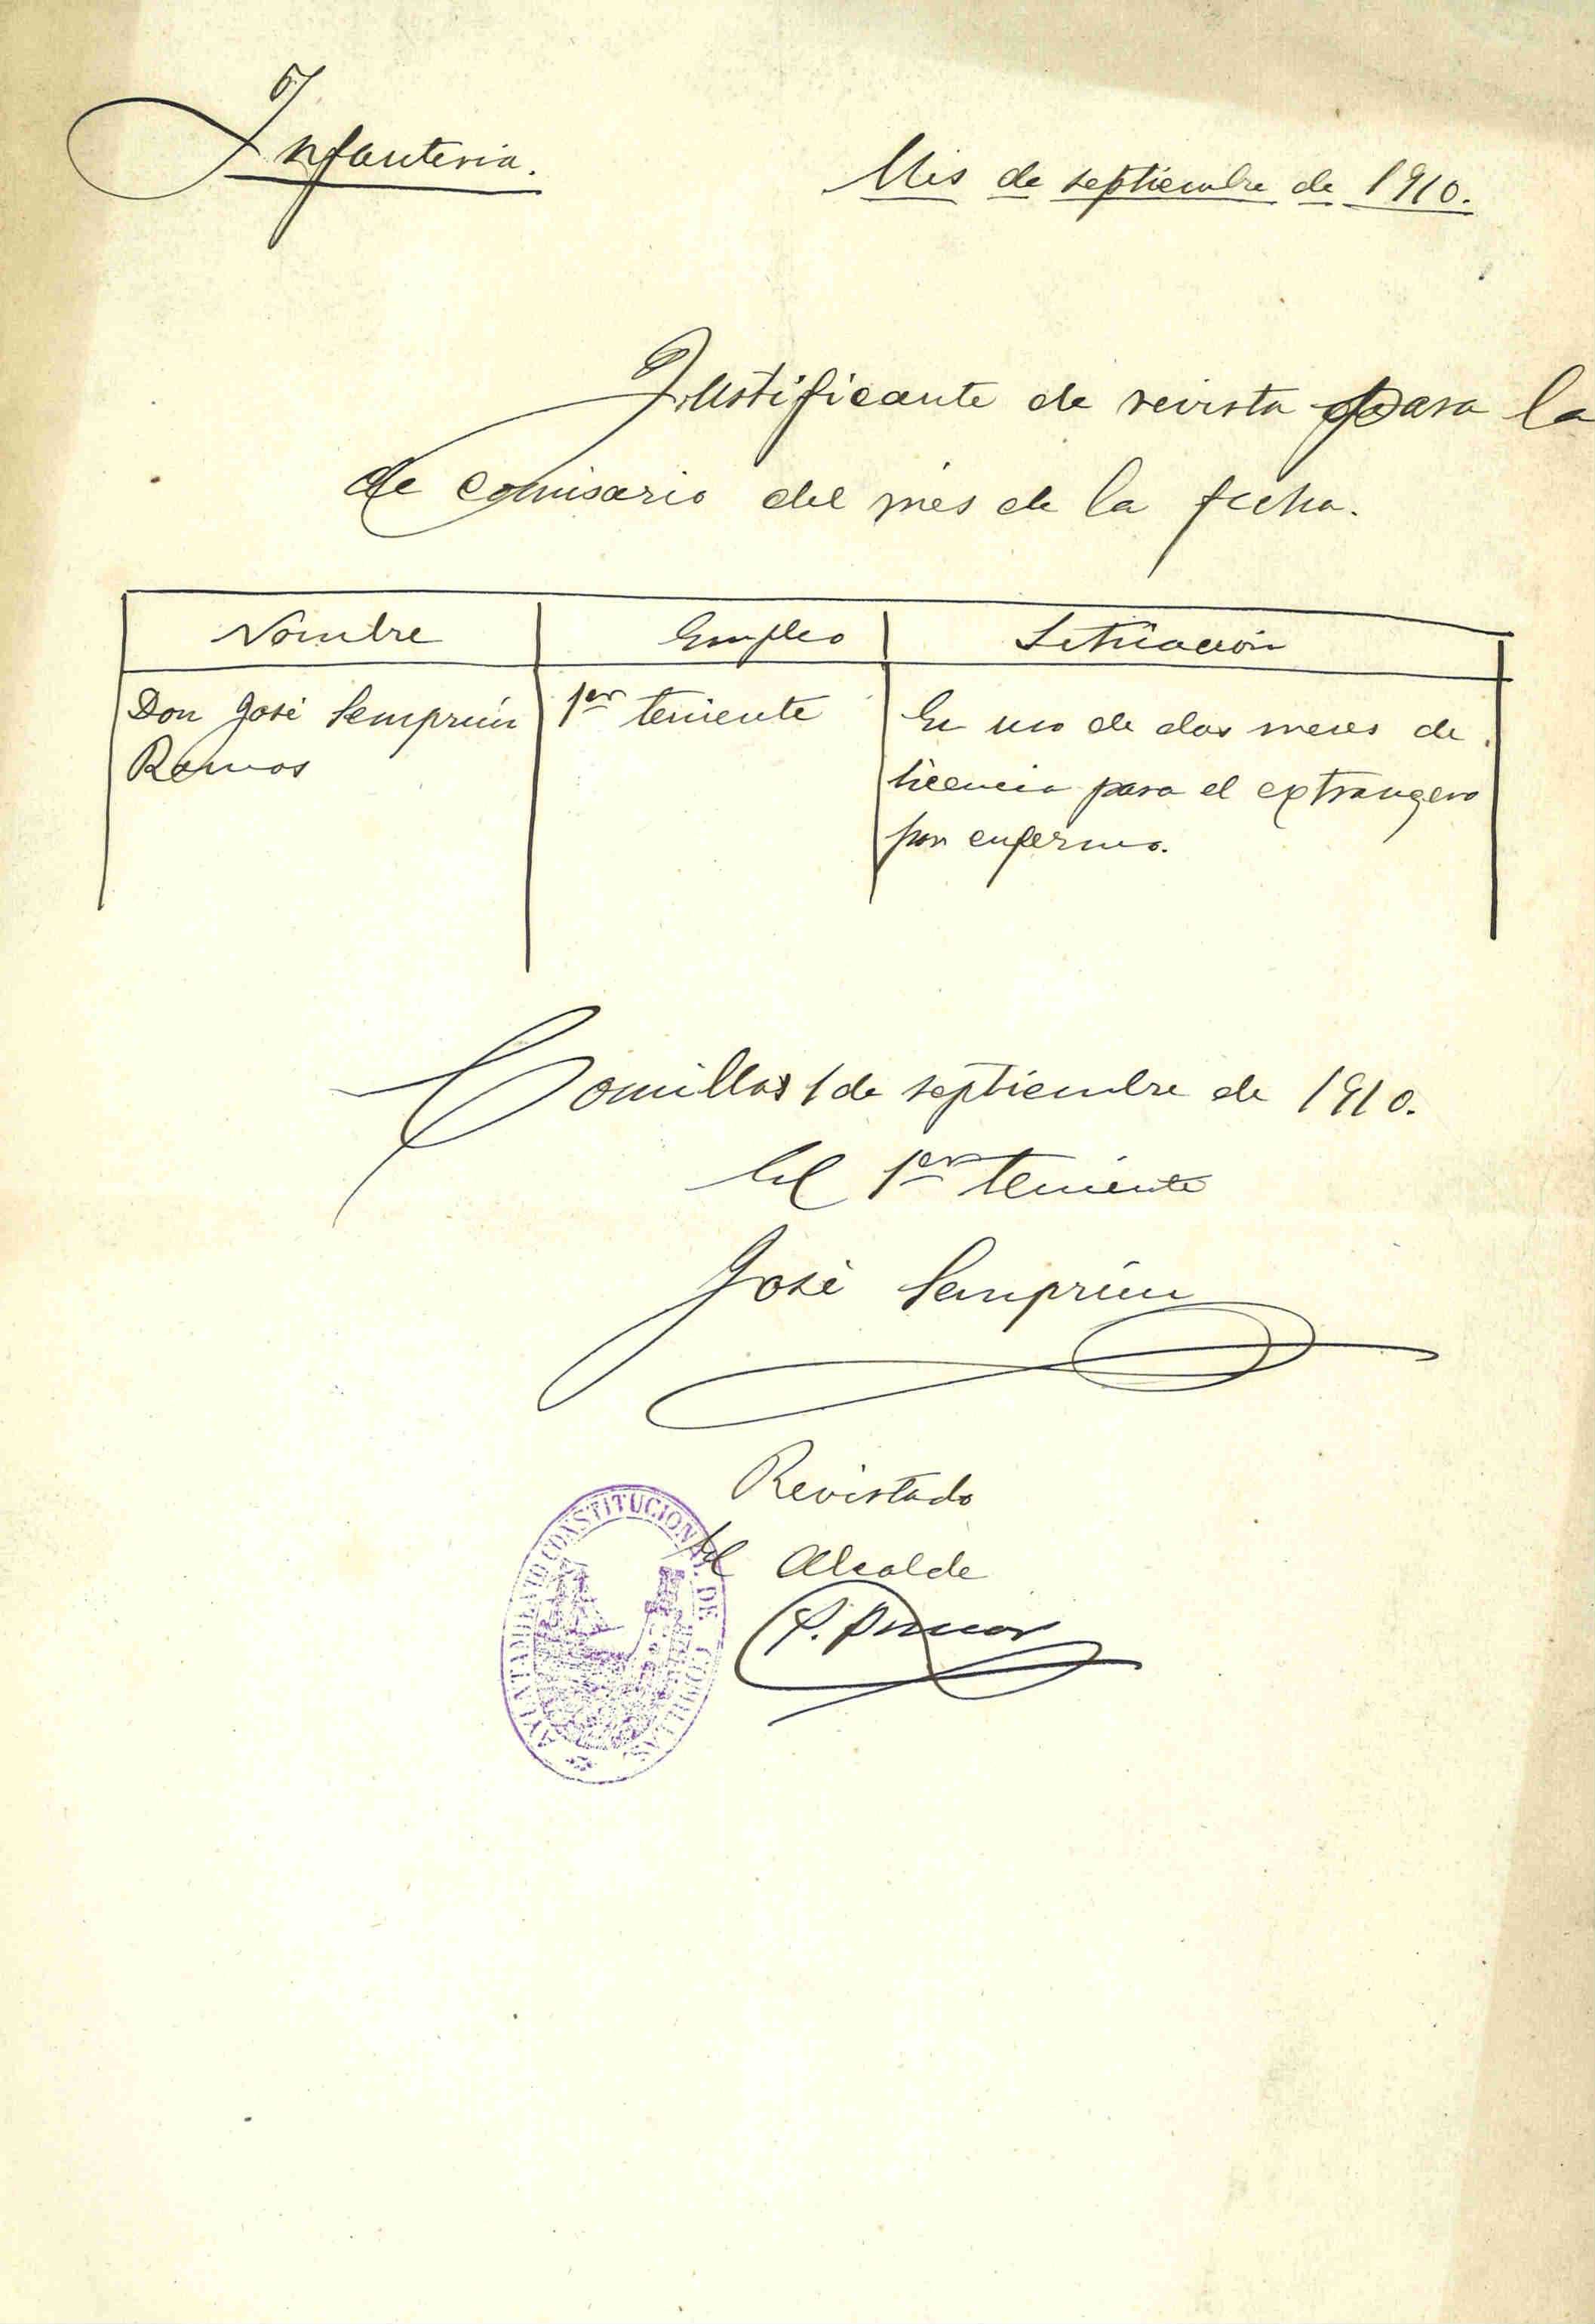 Infanteria.
Mes de septiembre de 1910.
Justificante de revista para la
de comisario del mes de la fecha.
Nombre Empleo Situación
Don José Semprún 1er teniente En uso de dos meses de
Ramos licencia para el extrangero
por enfermo.
Comillas 1 de septiembre de 1910.
El 1er teniente
José Semprún
Revistado
El Alcalde
AYUNTAMIENTO CONSTITUCIONAL DE COMILLAS